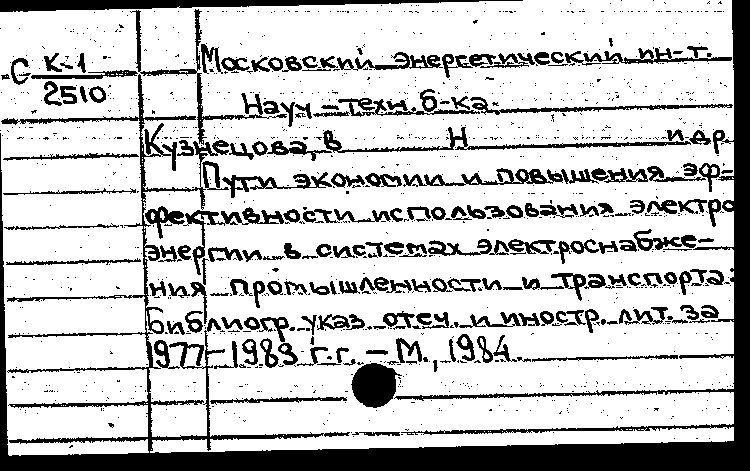 С К-1 Московский энергетический ин-т.
2510 Науч-техн. б-ка.
Кузнецова, В Н и др
Пути экономии и повышения эф-
фективности использования электро
энергии в системах электроснабже-
ния промышленности и транспорта:
Библиогр. указ. отеч. и иностр. лит. за
1977-1983 г.г. - М., 1984.